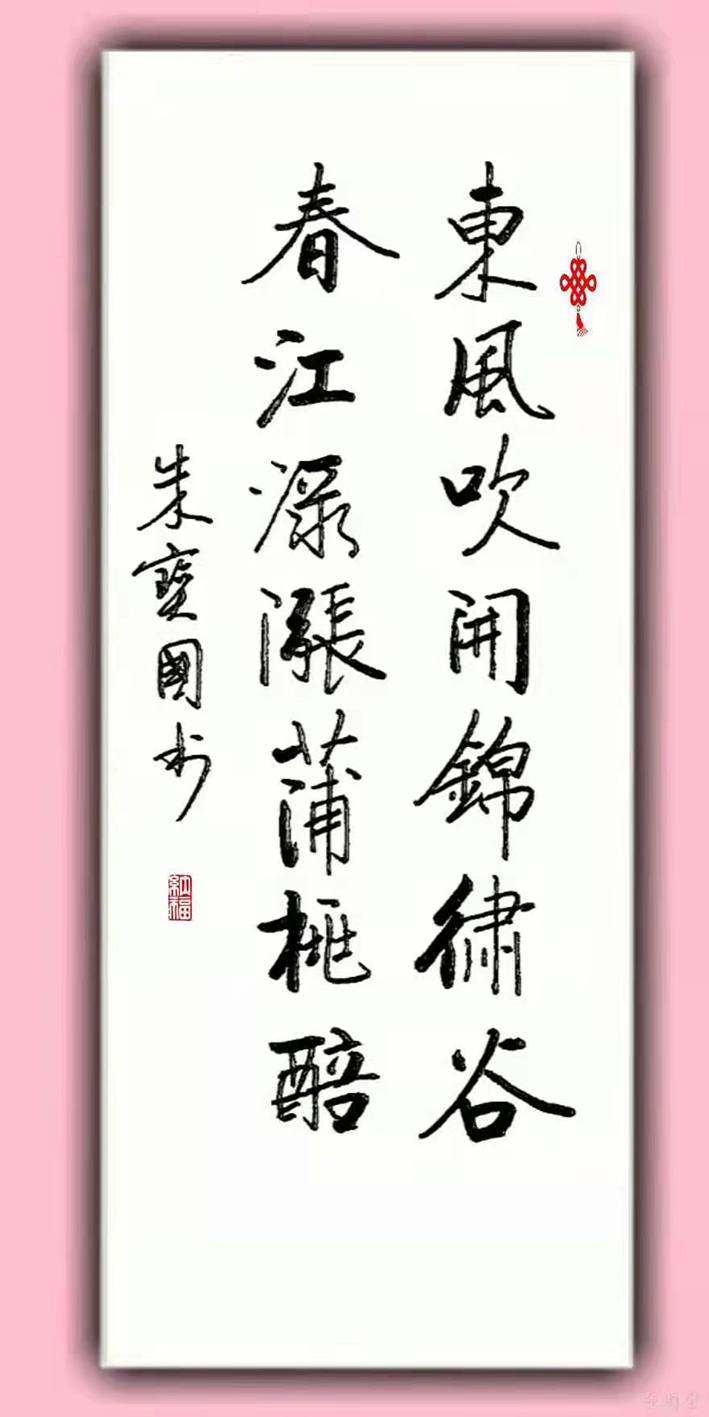 東風吹開錦繡谷
春江淥漲蒲桃醅
朱寶國书
納福